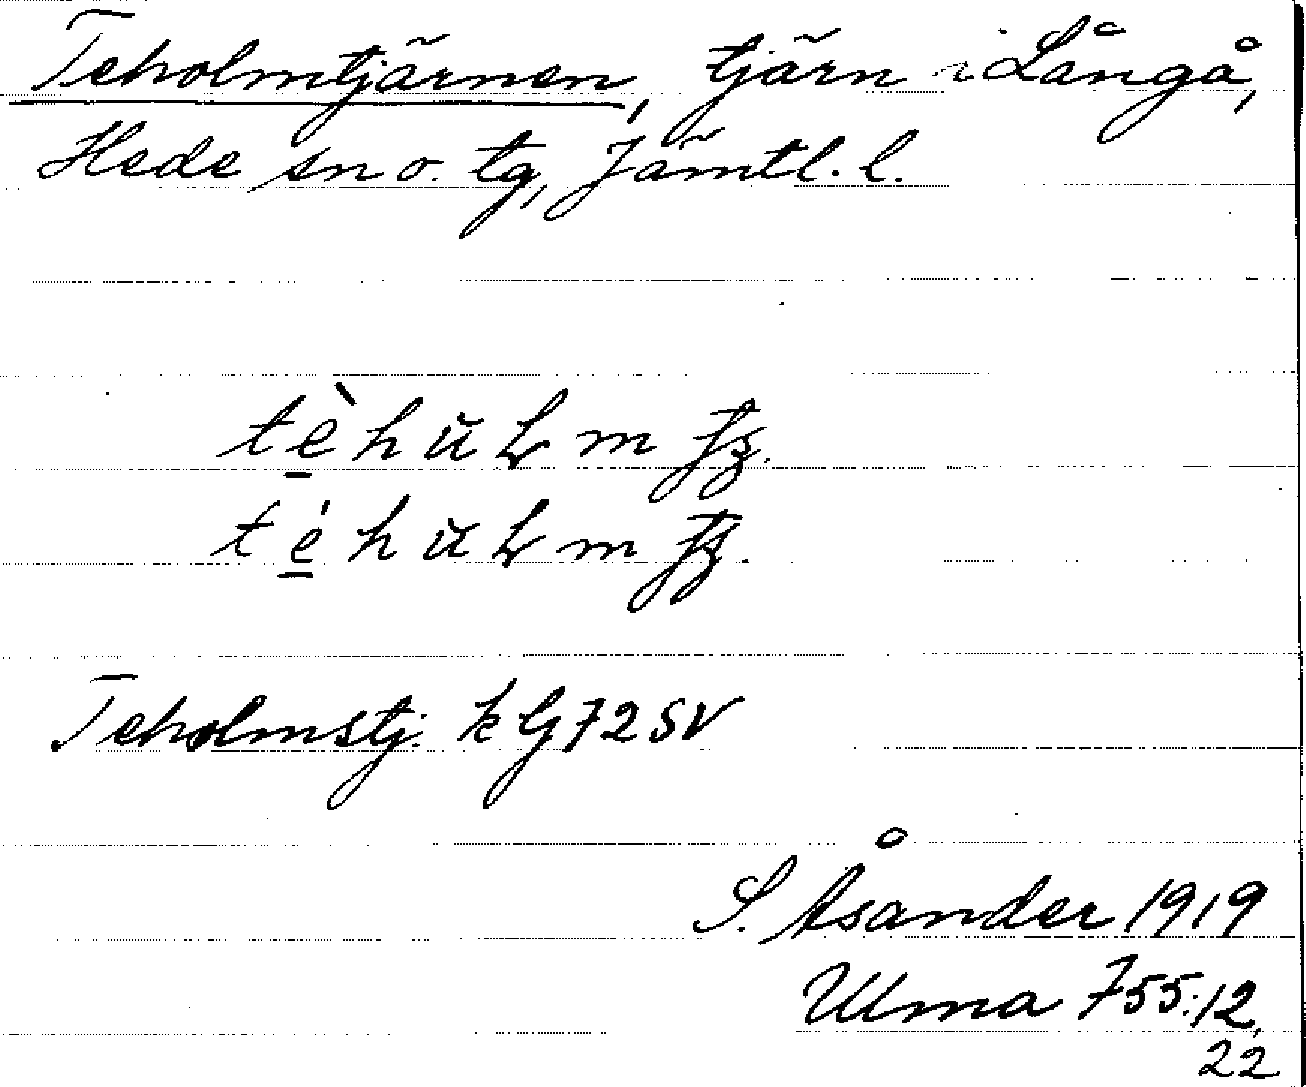 Teholmtjärnen, tjärn i Långå,
Hede sn o. tg, Jämtl. l.
Teholmstj. kG72SV
S. Åsander 1919
Ulma 755:12,
22